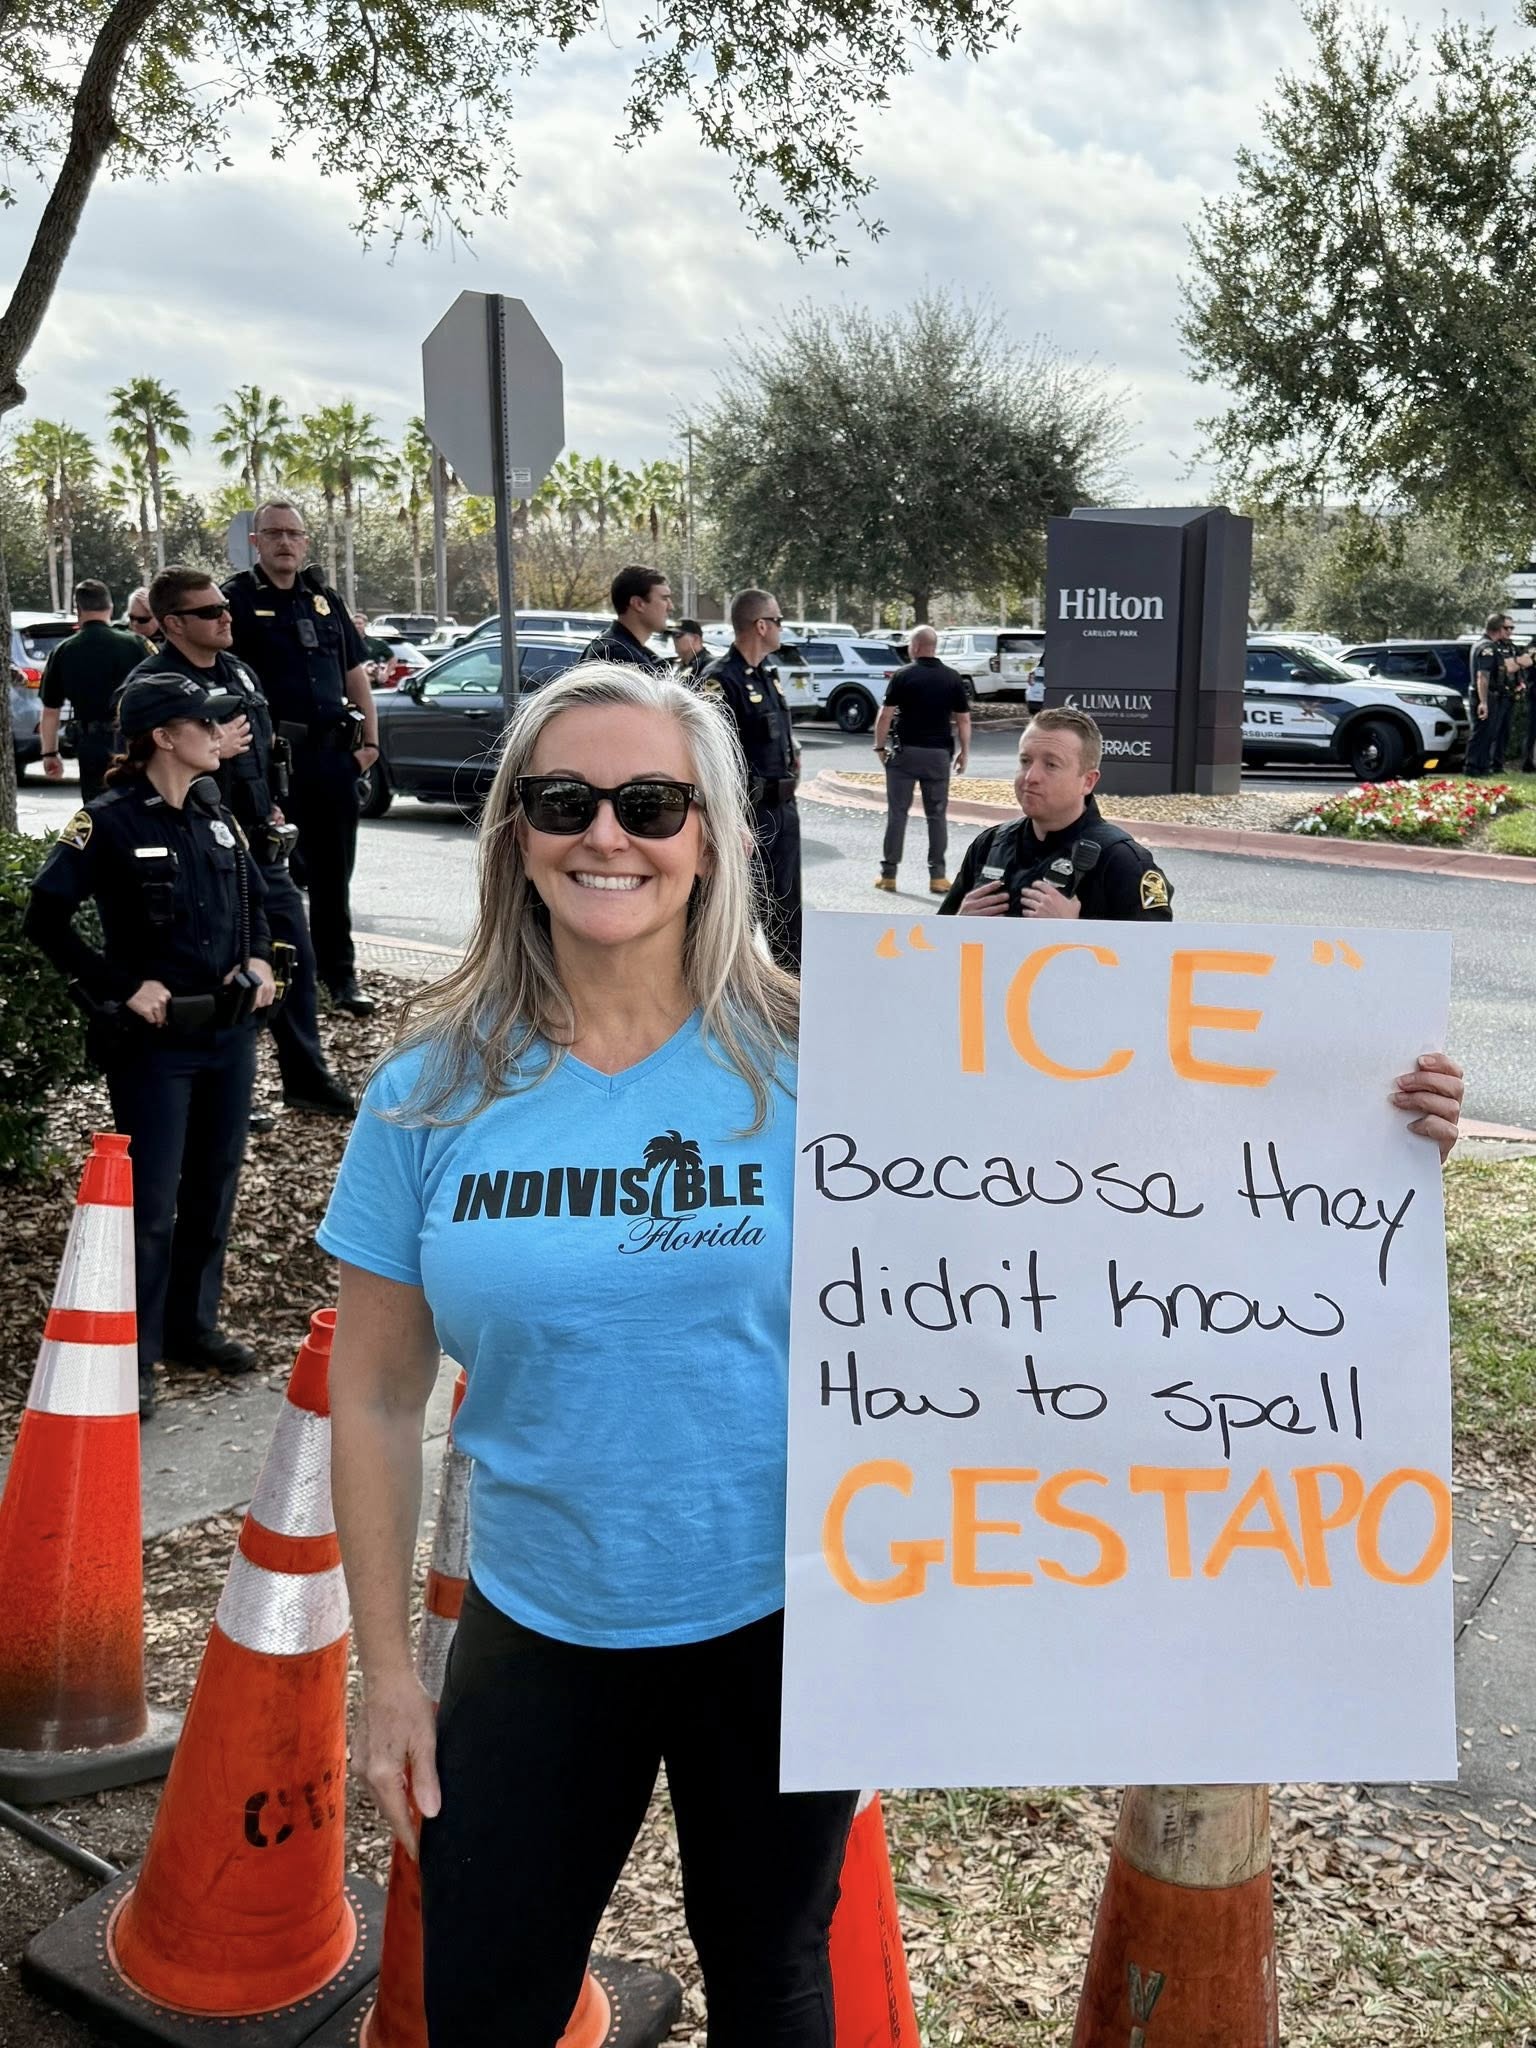 Hilton
CARILLON PARK
LUNA LUX
ERRACE
NCE
RSBURG
INDIVISIBLE
Florida
"ICE"
Because they
didn't know
How to spell
GESTAPO
CW